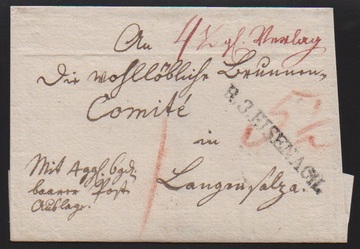 An 4 ½ gl. Verlag
Die wohllöbliche Brunnen-
Comité
R.3.EISENACH.
in
Langensalza.
Mit 4 ggl.
baarer Post
Auslage.